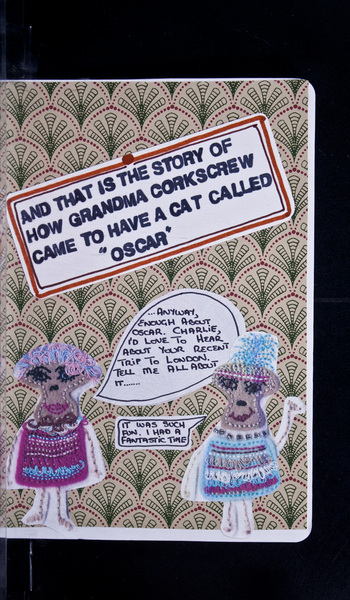 AND THAT IS THE STORY OF
HOW GRANDMA CORKSCREW
CAME TO HAVE A CAT CALLED
"OSCAR"
...ANYWAY,
ENOUGH ABOUT
OSCAR. CHARLIE,
I'D LOVE TO HEAR
ABOUT YOUR RECENT
TRIP TO LONDON.
TELL ME ALL ABOUT
IT.......
IT WAS SUCH
FUN. I HAD A
FANTASTIC TIME